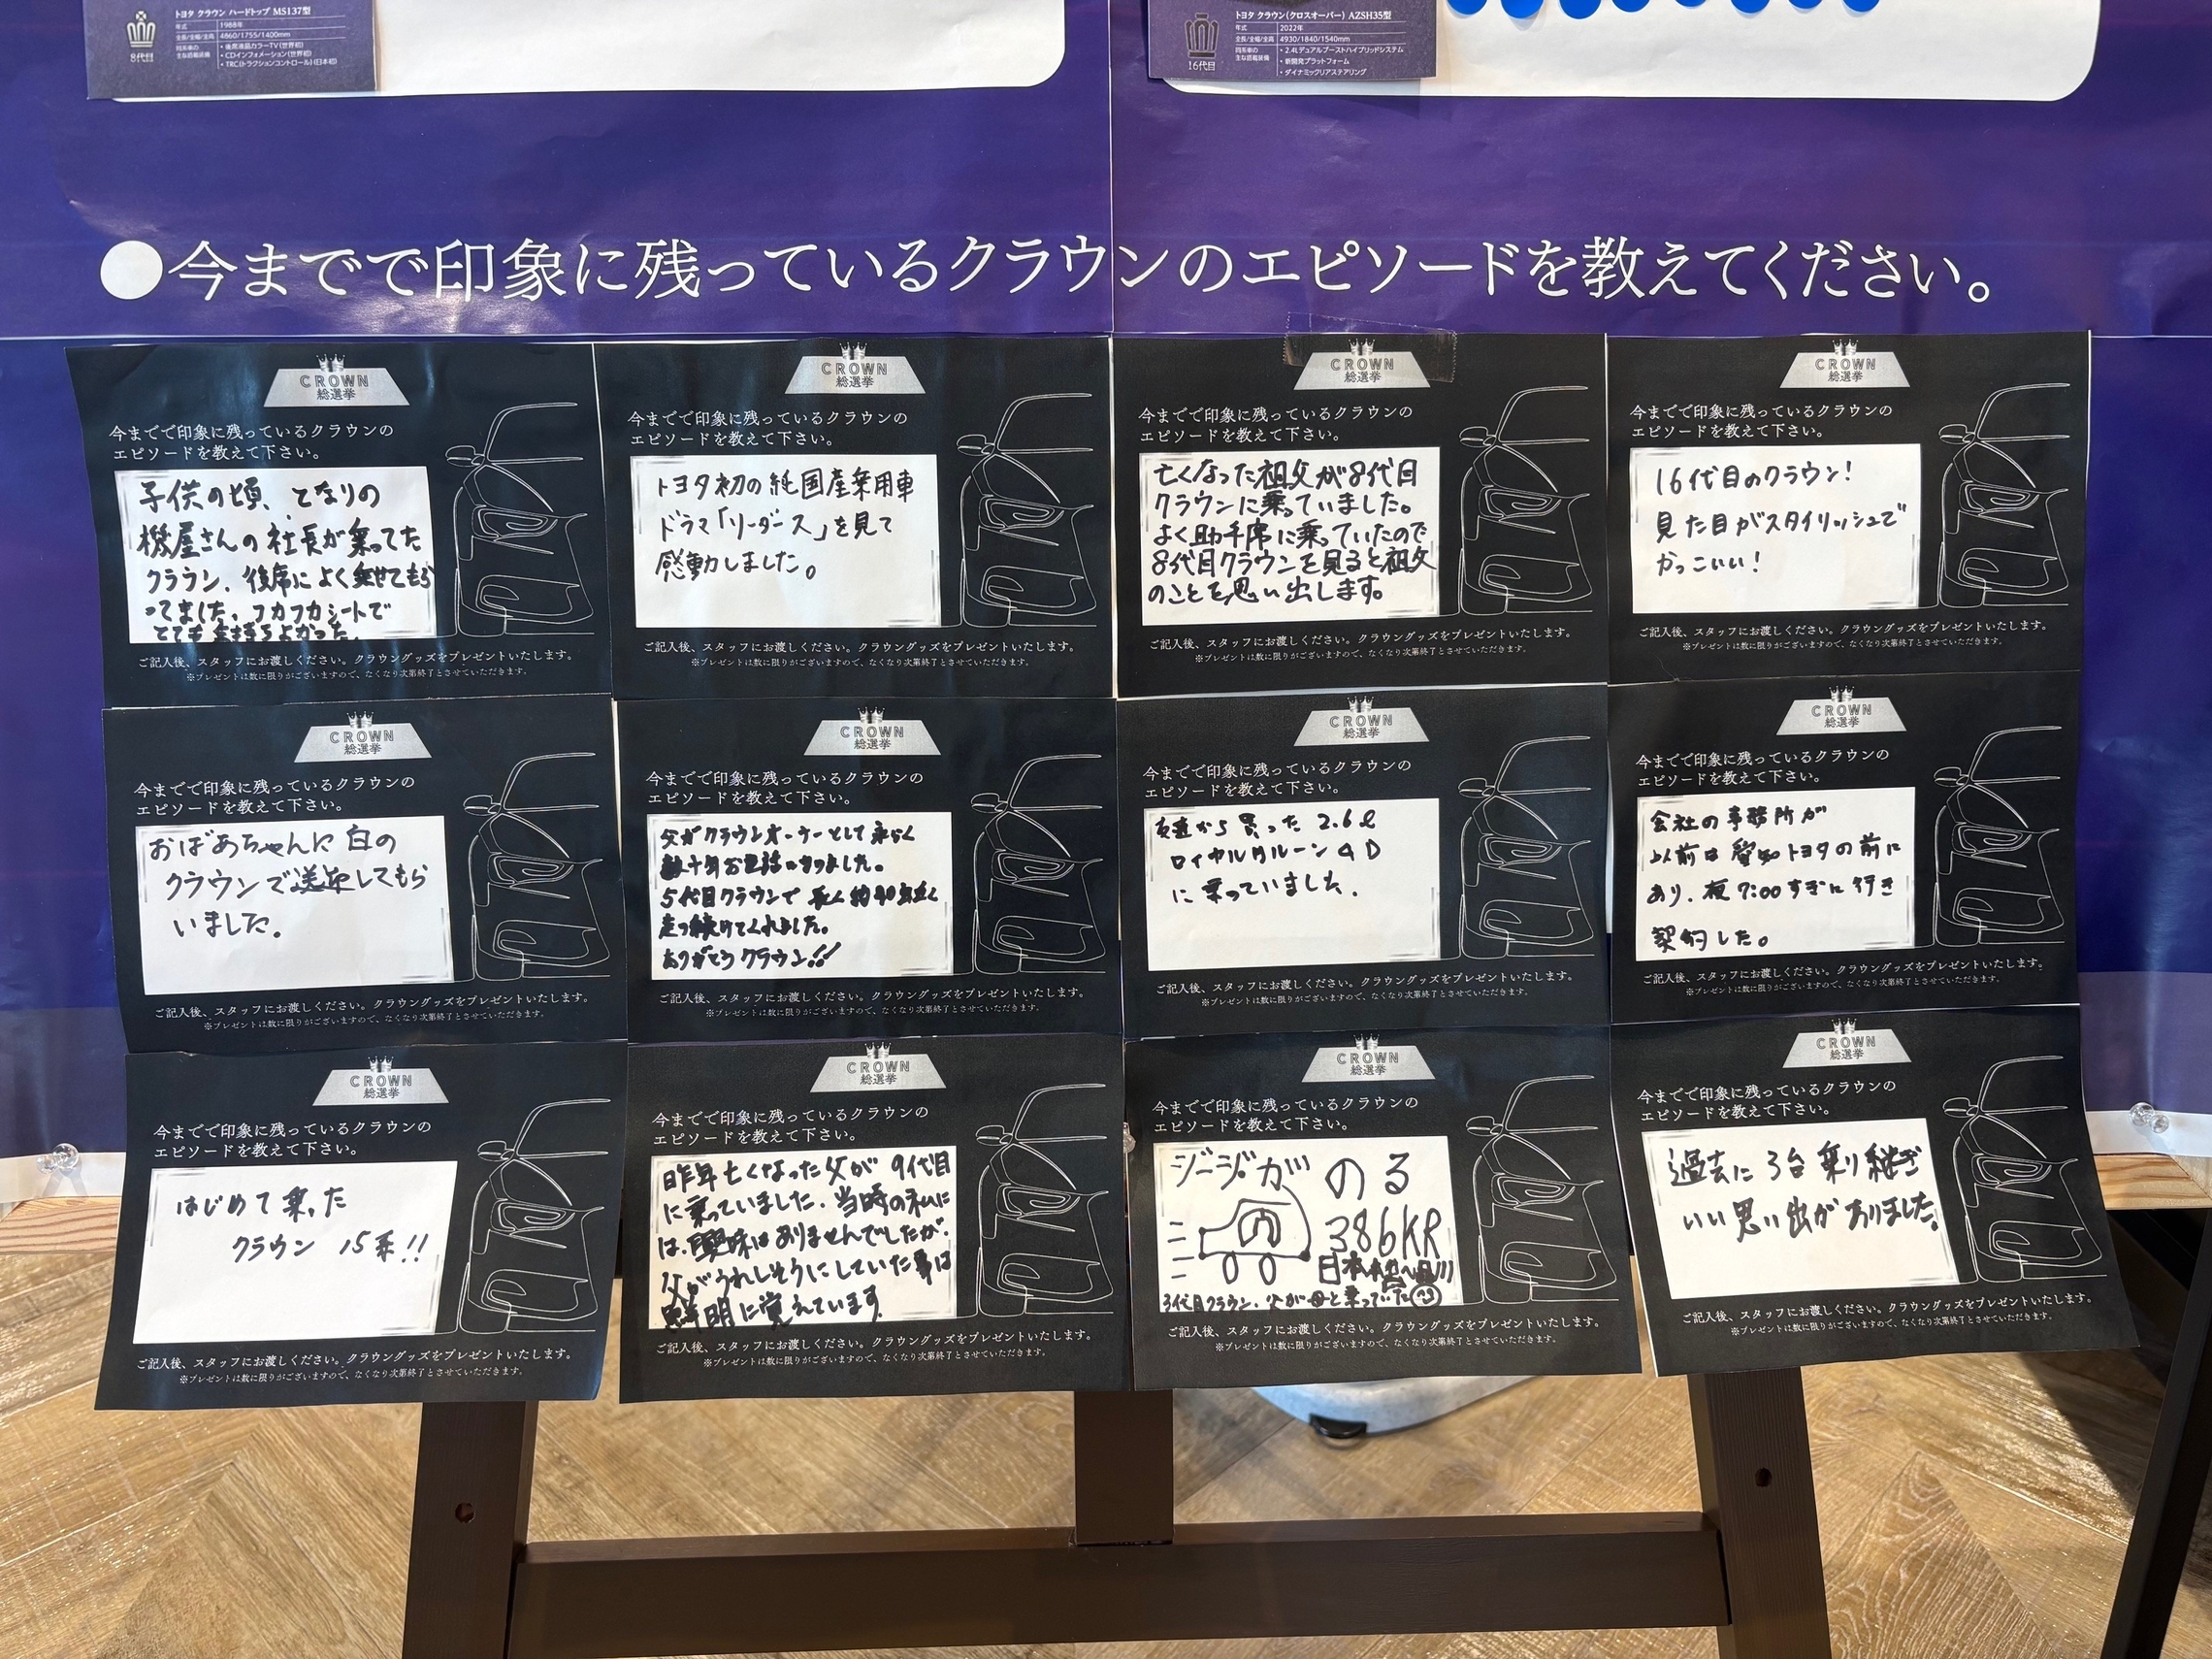 トヨタ クラウン ハードトップ MS137型
8代目
年式 1988年
全長/全幅/全高 4860/1755/1400mm
同系車の主な搭載装備
・後席液晶カラーTV(世界初)
・CDインフォメーション(世界初)
・TRC(トラクションコントロール)(日本初)
トヨタ クラウン(クロスオーバー) AZSH35型
16代目
年式 2022年
全長/全幅/全高 4930/1840/1540mm
同系車の主な搭載装備
・2.4Lデュアルブーストハイブリッドシステム
・新開発プラットフォーム
・ダイナミックリアステアリング
●今までで印象に残っているクラウンのエピソードを教えてください。
CROWN
総選挙
今までで印象に残っているクラウンの
エピソードを教えて下さい。
子供の頃、となりの
機屋さんの社長が乗ってた
クラウン、後席によく乗せてもら
ってました。フカフカシートで
とても気持ちよかった。
ご記入後、スタッフにお渡しください。クラウングッズをプレゼントいたします。
※プレゼントは数に限りがございますので、なくなり次第終了とさせていただきます。
CROWN
総選挙
今までで印象に残っているクラウンの
エピソードを教えて下さい。
トヨタ初の純国産乗用車
ドラマ「リーダース」を見て
感動しました。
ご記入後、スタッフにお渡しください。クラウングッズをプレゼントいたします。
※プレゼントは数に限りがございますので、なくなり次第終了とさせていただきます。
CROWN
総選挙
今までで印象に残っているクラウンの
エピソードを教えて下さい。
亡くなった祖父が8代目
クラウンに乗っていました。
よく助手席に乗っていたので
8代目クラウンを見ると祖父
のことを思い出します。
ご記入後、スタッフにお渡しください。クラウングッズをプレゼントいたします。
※プレゼントは数に限りがございますので、なくなり次第終了とさせていただきます。
CROWN
総選挙
今までで印象に残っているクラウンの
エピソードを教えて下さい。
16代目のクラウン!
見た目がスタイリッシュで
かっこいい!
ご記入後、スタッフにお渡しください。クラウングッズをプレゼントいたします。
※プレゼントは数に限りがございますので、なくなり次第終了とさせていただきます。
CROWN
総選挙
今までで印象に残っているクラウンの
エピソードを教えて下さい。
おばあちゃんに白の
クラウンで送迎してもら
いました。
ご記入後、スタッフにお渡しください。クラウングッズをプレゼントいたします。
※プレゼントは数に限りがございますので、なくなり次第終了とさせていただきます。
CROWN
総選挙
今までで印象に残っているクラウンの
エピソードを教えて下さい。
父がクラウンオーナーとして永らく
数十年お世話になりました。
5代目クラウンで 長く約40年近く
走り続けてくれました。
ありがとうクラウン!!
ご記入後、スタッフにお渡しください。クラウングッズをプレゼントいたします。
※プレゼントは数に限りがございますので、なくなり次第終了とさせていただきます。
CROWN
総選挙
今までで印象に残っているクラウンの
エピソードを教えて下さい。
友達から買った 2.6ℓ
ロイヤルサルーン 4D
に乗っていました。
ご記入後、スタッフにお渡しください。クラウングッズをプレゼントいたします。
※プレゼントは数に限りがございますので、なくなり次第終了とさせていただきます。
CROWN
総選挙
今までで印象に残っているクラウンの
エピソードを教えて下さい。
会社の事務所が
以前は愛知トヨタの前に
あり、夜7:00すぎに行き
契約した。
ご記入後、スタッフにお渡しください。クラウングッズをプレゼントいたします。
※プレゼントは数に限りがございますので、なくなり次第終了とさせていただきます。
CROWN
総選挙
今までで印象に残っているクラウンの
エピソードを教えて下さい。
はじめて乗った
クラウン 15系!!
ご記入後、スタッフにお渡しください。クラウングッズをプレゼントいたします。
※プレゼントは数に限りがございますので、なくなり次第終了とさせていただきます。
CROWN
総選挙
今までで印象に残っているクラウンの
エピソードを教えて下さい。
昨年亡くなった父が 9代目
に乗っていました。当時の私に
は、興味はありませんでしたが、
父がうれしそうにしていた事は
鮮明に覚えています。
ご記入後、スタッフにお渡しください。クラウングッズをプレゼントいたします。
※プレゼントは数に限りがございますので、なくなり次第終了とさせていただきます。
CROWN
総選挙
今までで印象に残っているクラウンの
エピソードを教えて下さい。
ジージが のる
386KR
日本
3代目クラウン、父が母と乗っていた
ご記入後、スタッフにお渡しください。クラウングッズをプレゼントいたします。
※プレゼントは数に限りがございますので、なくなり次第終了とさせていただきます。
CROWN
総選挙
今までで印象に残っているクラウンの
エピソードを教えて下さい。
過去に3台乗り継ぎ
いい思い出がありました。
ご記入後、スタッフにお渡しください。クラウングッズをプレゼントいたします。
※プレゼントは数に限りがございますので、なくなり次第終了とさせていただきます。